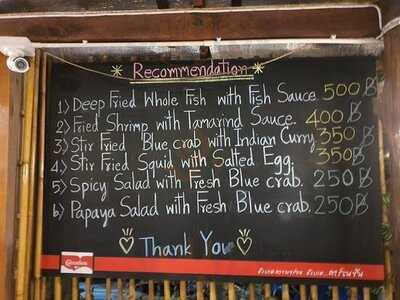 Recommendation
1) Deep Fried Whole Fish with Fish Sauce. 500 ฿
2) Fried Shrimp with Tamarind Sauce. 400 ฿
3) Stir Fried Blue crab with Indian Curry 350 ฿
4) Stir Fried Squid with Salted Egg. 350 ฿
5) Spicy Salad with Fresh Blue crab. 250 ฿
6) Papaya Salad with Fresh Blue crab. 250 ฿
Thank You